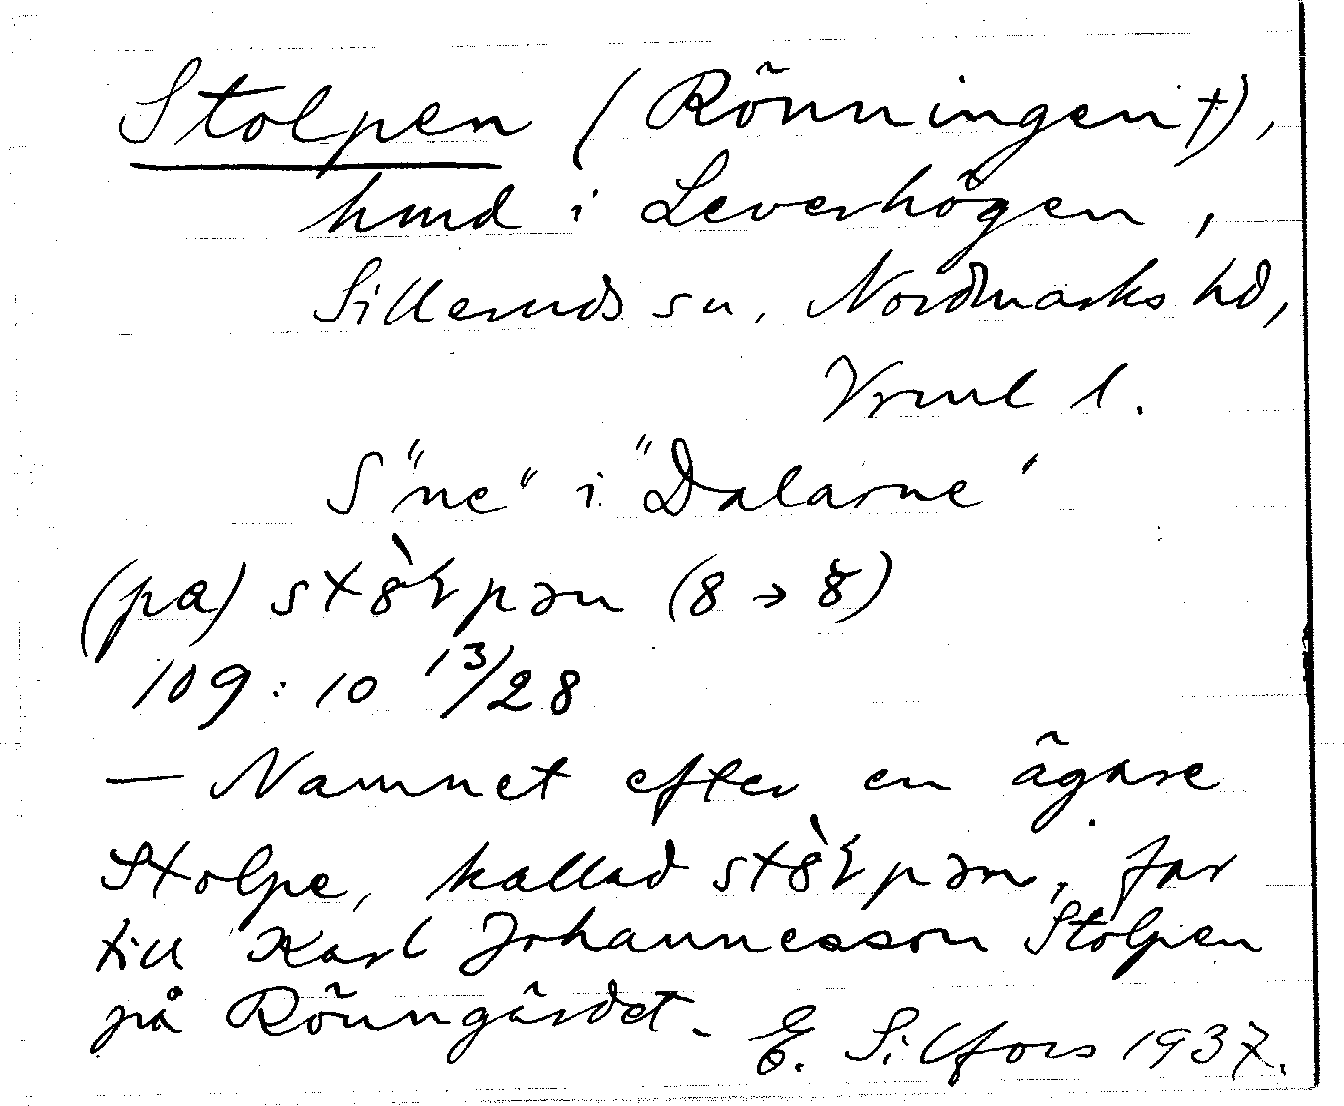 Stolpen (Rönningen †),
hmd i Leverhögen,
Silleruds sn, Nordmarks hd,
Vrml l.
S "ne" i "Dalarne"
(pa) st8̀ɽpən (8 → 8̆)
109 : 10 13/28
— Namnet efter en ägare
Stolpe, kallad st8̀ɽpən, far
till Karl Johannesson Stolpen
på Rönngärdet. E. Silfors 1937.